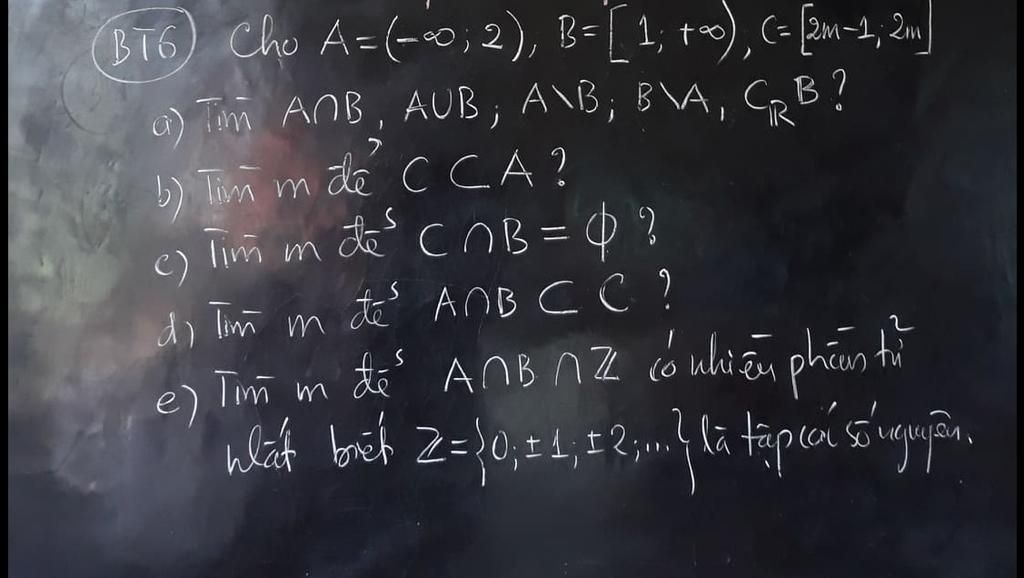 BT6 Cho A = (-∞; 2), B = [1; +∞), C = [2m-1; 2m]
a) Tìm A∩B, A∪B; A\B; B\A, C_ℝ B?
b) Tìm m để C ⊂ A?
c) Tìm m để C∩B = ϕ?
d) Tìm m để A∩B ⊂ C?
e) Tìm m để A∩B∩ℤ có nhiều phần tử
nhất biết ℤ = {0; ±1; ±2; ...} là tập các số nguyên.